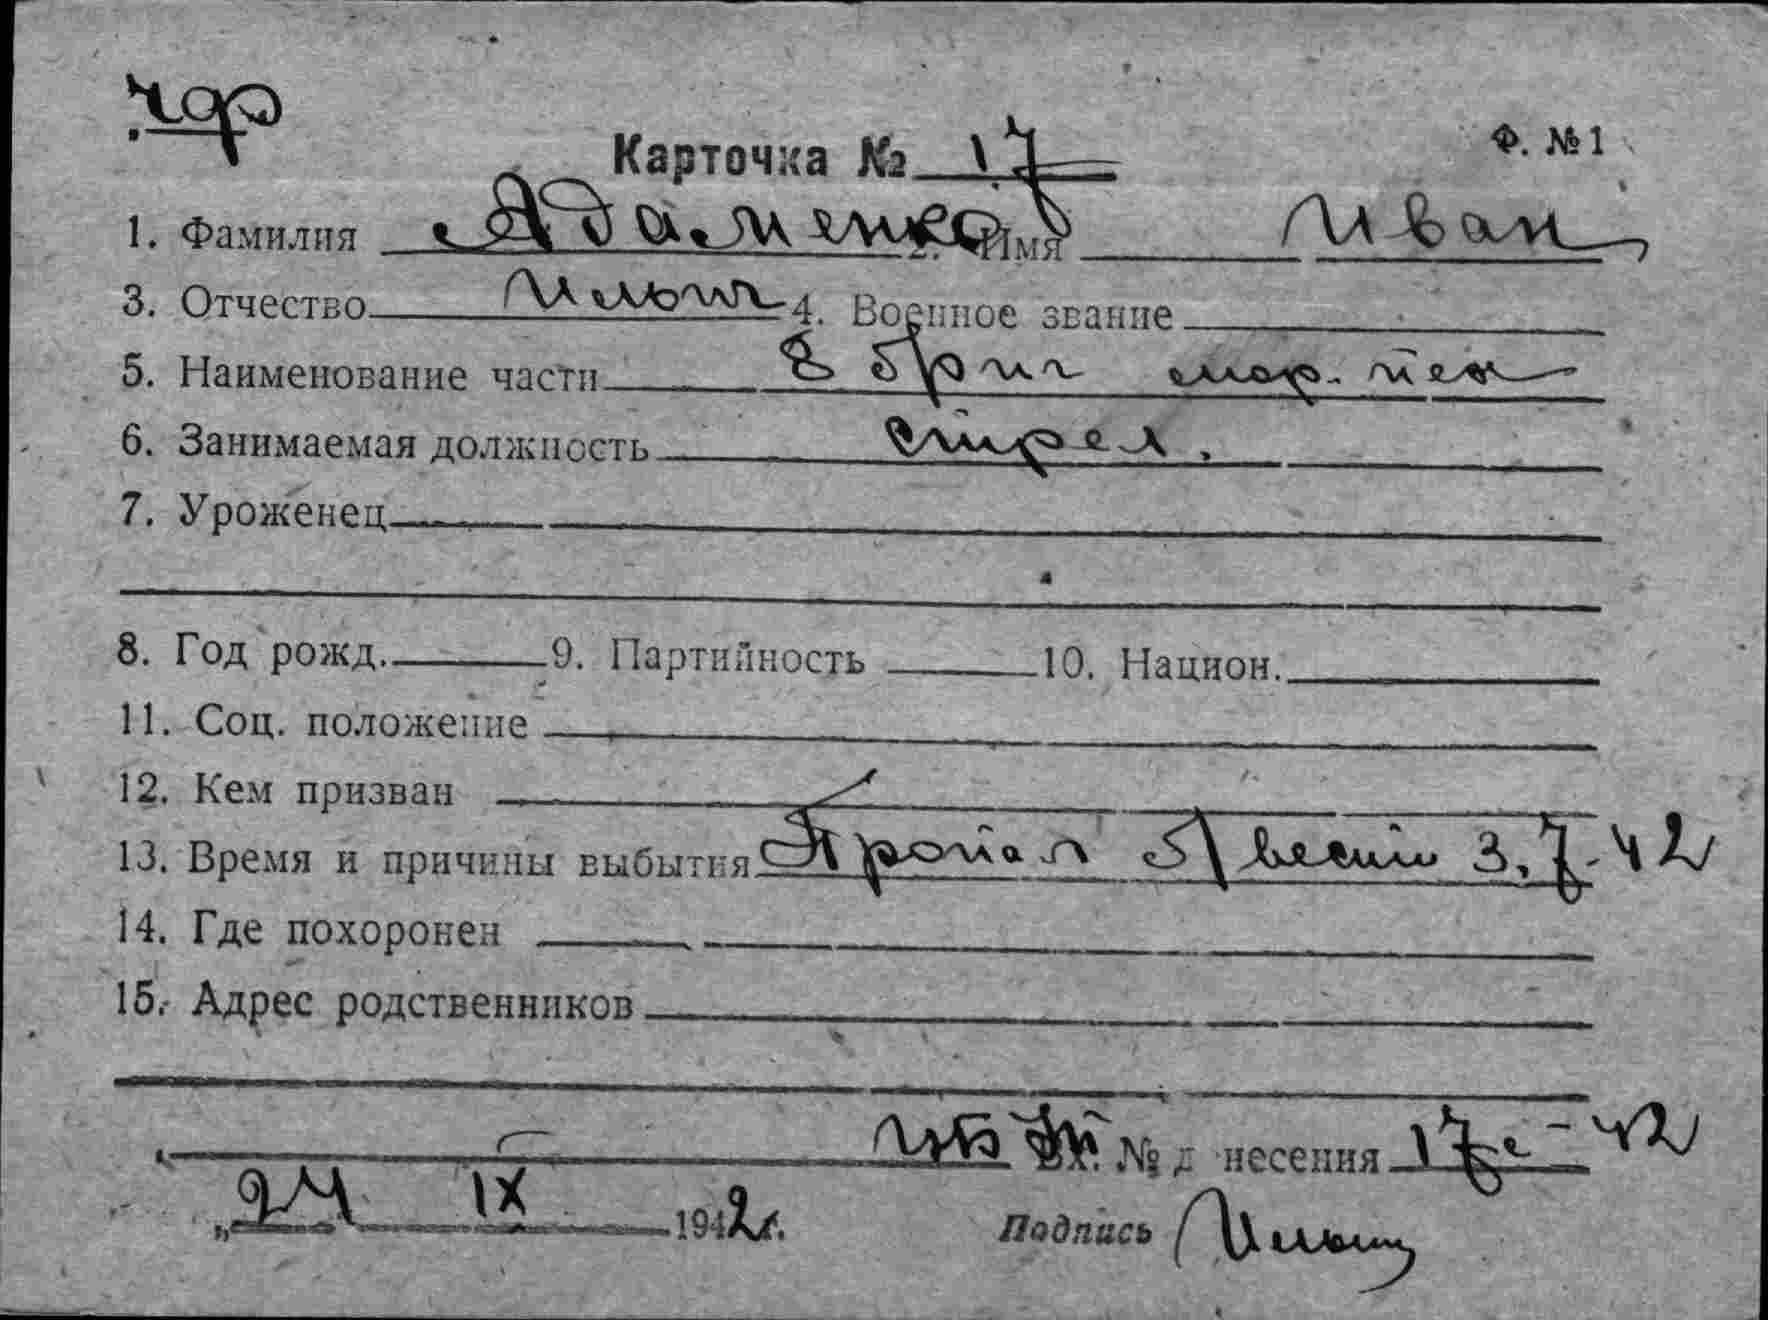 чф
Карточка № 17 Ф. № 1
1. Фамилия Адаменко 2. Имя Иван
3. Отчество Ильич 4. Военное звание
5. Наименование части 8 бриг мор. пех
6. Занимаемая должность стрел.
7. Уроженец
8. Год рожд. 9. Партийность 10. Национ.
11. Соц. положение
12. Кем призван
13. Время и причины выбытия Пропал б/вести 3.7.42
14. Где похоронен
15. Адрес родственников
Вх. № д несения 17 42
„24 IX 1942г.
Подпись